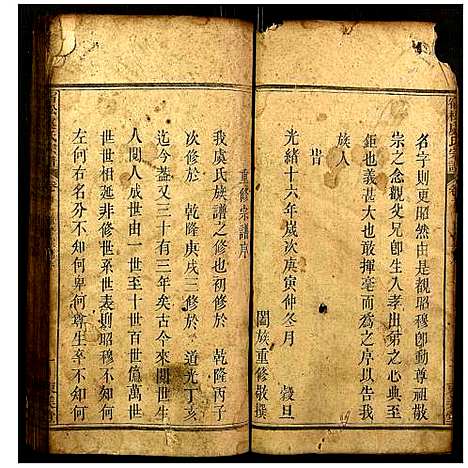 名字則更昭然由是觀昭穆卽動尊祖敬
宗之念觀父兄卽生入孝出弟之心典至
鉅也義甚大也敢揮毫而為之序以告我
族人
旹
光緒十六年歲次庚寅仲冬月 穀旦
闔族重修敬撰
重修宗譜序
我虞氏族譜之修也初修於 乾隆丙子
次修於 乾隆庚戌三修於 道光丁亥
迄今葢又三十有三年矣古今來閱世生
人閱人成世由一世至十世百世億萬世
世世相延非修世系世表則昭穆不知何
左何右名分不知何卑何尊生卒不知何